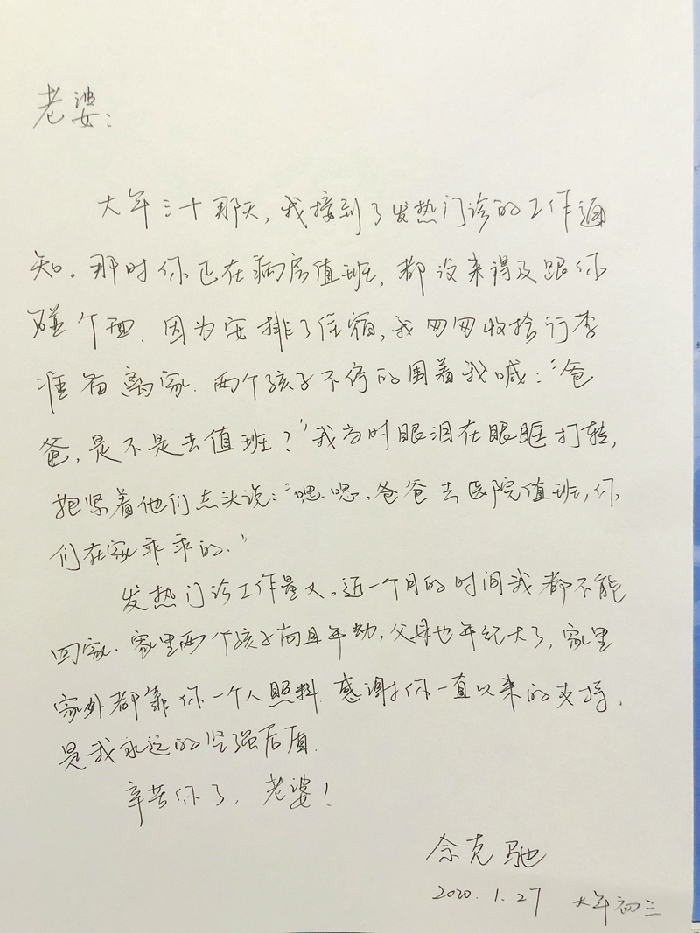 老婆：
大年三十那天，我接到了发热门诊的工作通
知．那时你已在病房值班，都没来得及跟你
碰个面．因为安排了住宿，我匆匆收拾行李
准备离家．两个孩子不停的围着我喊：“爸
爸，是不是去值班？”我当时眼泪在眼眶打转，
抱紧着他们点头说：“嗯嗯．爸爸去医院值班，你
们在家乖乖的．”
发热门诊工作量大．近一个月的时间我都不能
回家．家里两个孩子尚且年幼，父母也年纪大了，家里
家外都靠你一个人照料 感谢你一直以来的支持，
是我永远的坚强后盾．
辛苦你了，老婆！
余克驰
2020.1.27 大年初三